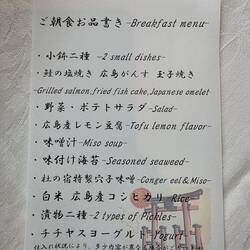 ご朝食お品書き-Breakfast menu-
・小鉢二種 -2 small dishes-
・鮭の塩焼き 広島がんす 玉子焼き
-Grilled salmon,fried fish cake,Japanese omelet
・野菜・ポテトサラダ-Salad-
・広島産レモン豆腐-Tofu lemon flavor-
・味噌汁-Miso soup-
・味付け海苔-Seasoned seaweed-
・杜の宿特製穴子味噌-Conger eel&Miso-
・白米 広島産コシヒカリ-Rice-
・漬物二種-2 types of Pickles-
・チチヤスヨーグルト-Yogurt-
仕入れ状況により、多少内容が